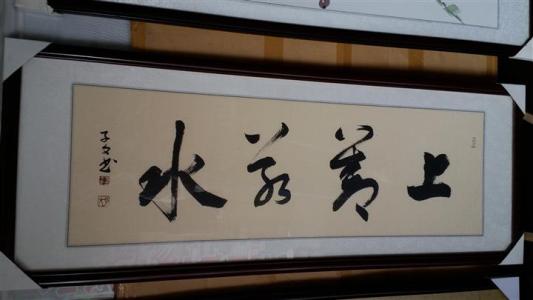 上善若水
子文书